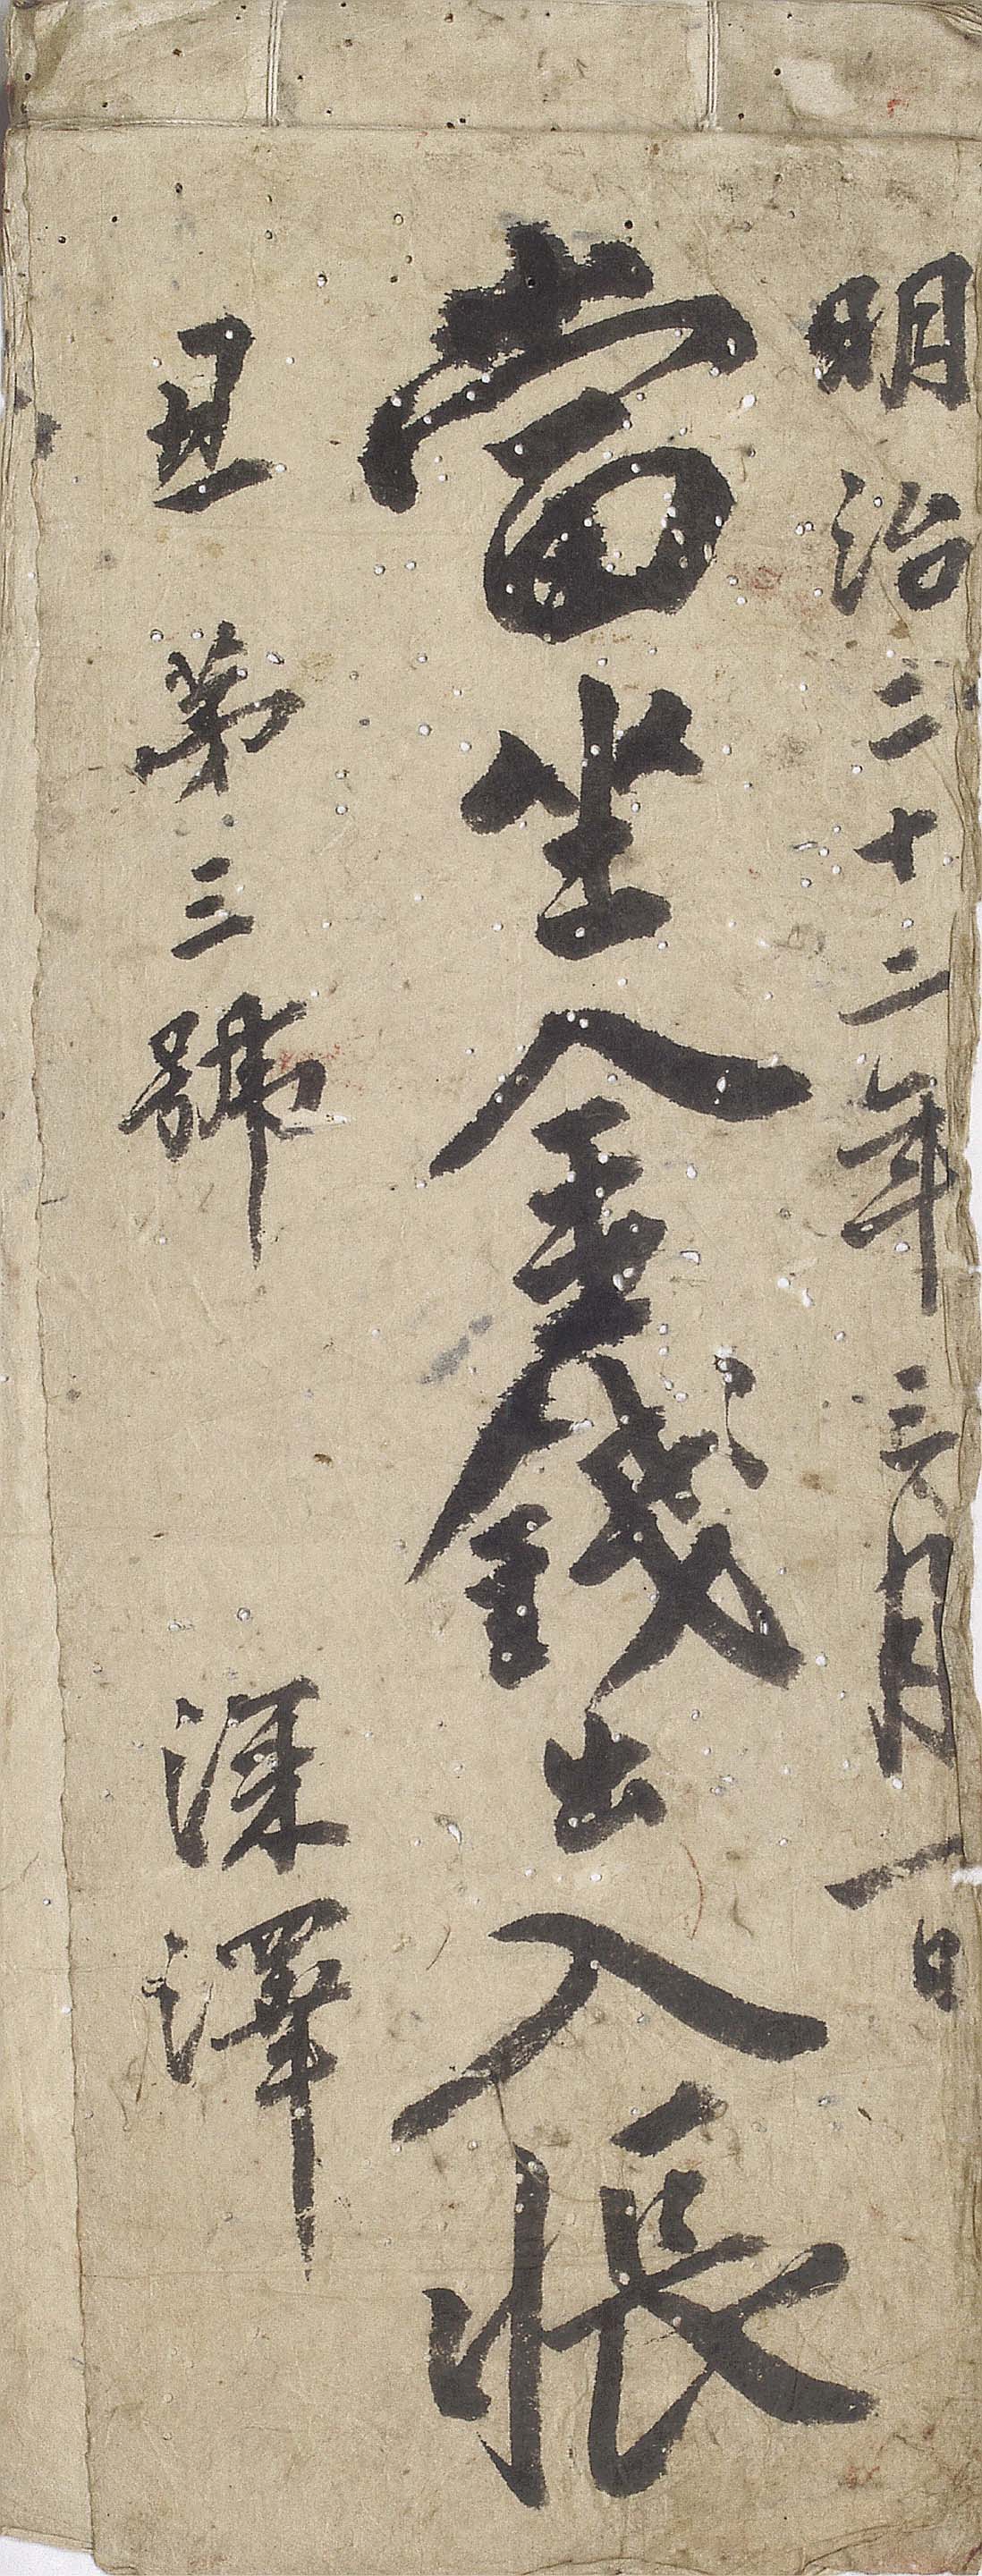 明治二十二年三月一日
當坐金錢出入帳
丑第三號 深澤